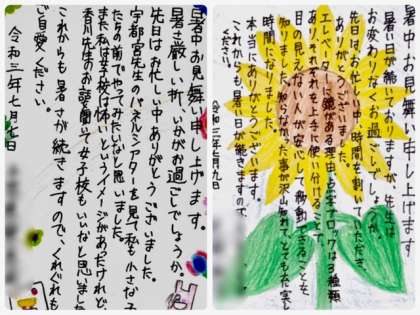 暑中お見舞い申し上げます。
暑さ厳しい折、いかがお過ごしでしょうか。
先日はお忙しい中ありがとうございました。
宇都宮先生のパネルシアターを見て私も小さな子
たちの前でやってみたいなと思いました。
また私は女子校は怖いというイメージがあったけれど、
香川先生のお話を聞いて女子校もいいなと思いました
これからも暑さが続きますので、くれぐれも
ご自愛ください。
令和三年七月七日
暑中お見舞い申し上げます
暑い日が続いておりますが、先生は
お変わりなくお過ごしでしょうか。
先日はお忙しい中、時間を割いていただき
ありがとうございました。
エレベーターに鏡がある理由、点字ブロックは3種類
あり、それぞれを上手に使い分けることで、
目の見えない人が安心して移動できることを
知りました。知らなかった事が沢山知れて、とても充実し
時間になりました。
本当にありがとうございます。
これからも暑い日が続きますので、
令和三年七月九日